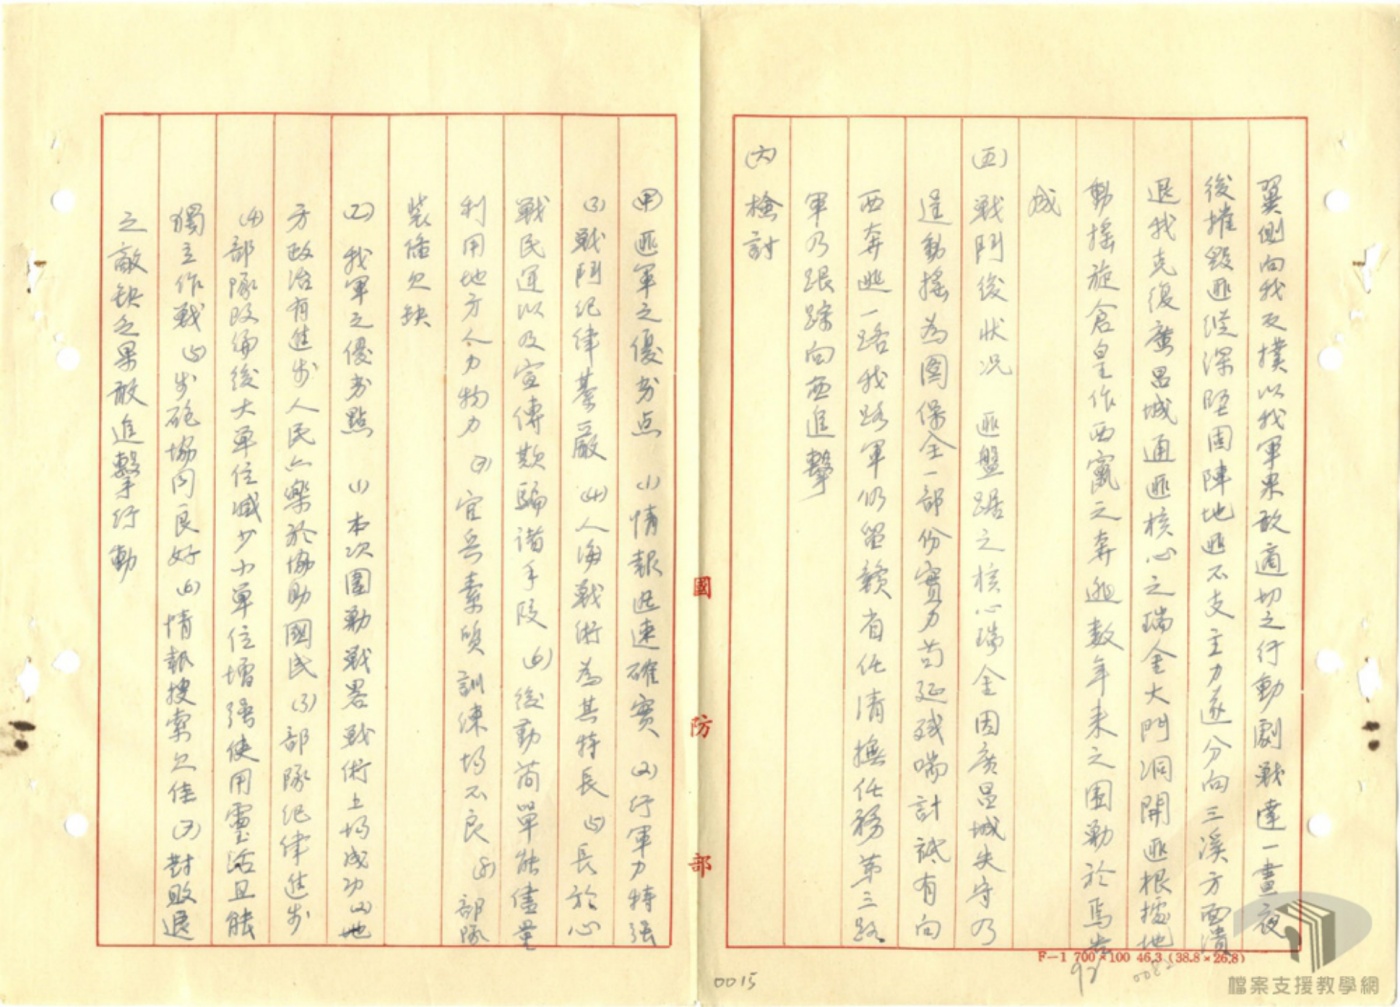 翼側向我反撲以我軍果敢適切之行動劇戰達一晝夜
後摧毀匪縱深堅固陣地匪不支主力遂分向三溪方面潰
退我克復廣昌城通匪核心之瑞金大門洞開匪根據地
動搖旋倉皇作西竄之奔逃數年來之圍勦於焉告
成
(五)戰鬥後狀況 匪盤踞之核心瑞金因廣昌城失守乃
逞動搖為圖保全一部份實力苟延殘喘計祗有向
西奔逃一路我路軍仍留贛省任清撫任務第三路
軍乃跟踪向西進擊
(六)檢討
(甲)匪軍之優劣点 (1)情報迅速確實 (2)行軍力特強
(3)戰鬥紀律綦嚴 (4)人海戰術為其特長 (5)長於心
戰民運以及宣傳欺騙諸手段 (6)後勤簡單能儘量
利用地方人力物力 (7)官兵素質訓練均不良 (8)部隊
裝備欠缺
(乙)我軍之優劣點 (1)本次圍勦戰畧戰術上均成功(2)地
方政治有進步人民亦樂於協助國民(3)部隊紀律進步
(4)部隊改編後大單位減少小單位增強使用靈活且能
獨立作戰(5)步砲協同良好(6)情報搜索欠佳(7)對敗退
之敵缺乏果敢追擊行動
國防部
F-1 700×100 46.3 (38.8×26.8)
0015
92
0082
檔案支援教學網